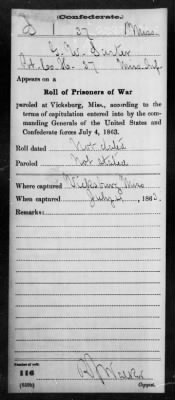 (Confederate.)
P 1 37 Miss.
G. W. Parker
Pvt. Co. Co. 37 Miss. Inf.
Appears on a
Roll of Prisoners of War
paroled at Vicksburg, Miss., according to the
terms of capitulation entered into by the com-
manding Generals of the United States and
Confederate forces July 4, 1863.
Roll dated Not dated
Paroled Not stated
Where captured Vicksburg Miss
When captured July 4, 1863.
Remarks:
Number of roll:
116
Copyist.